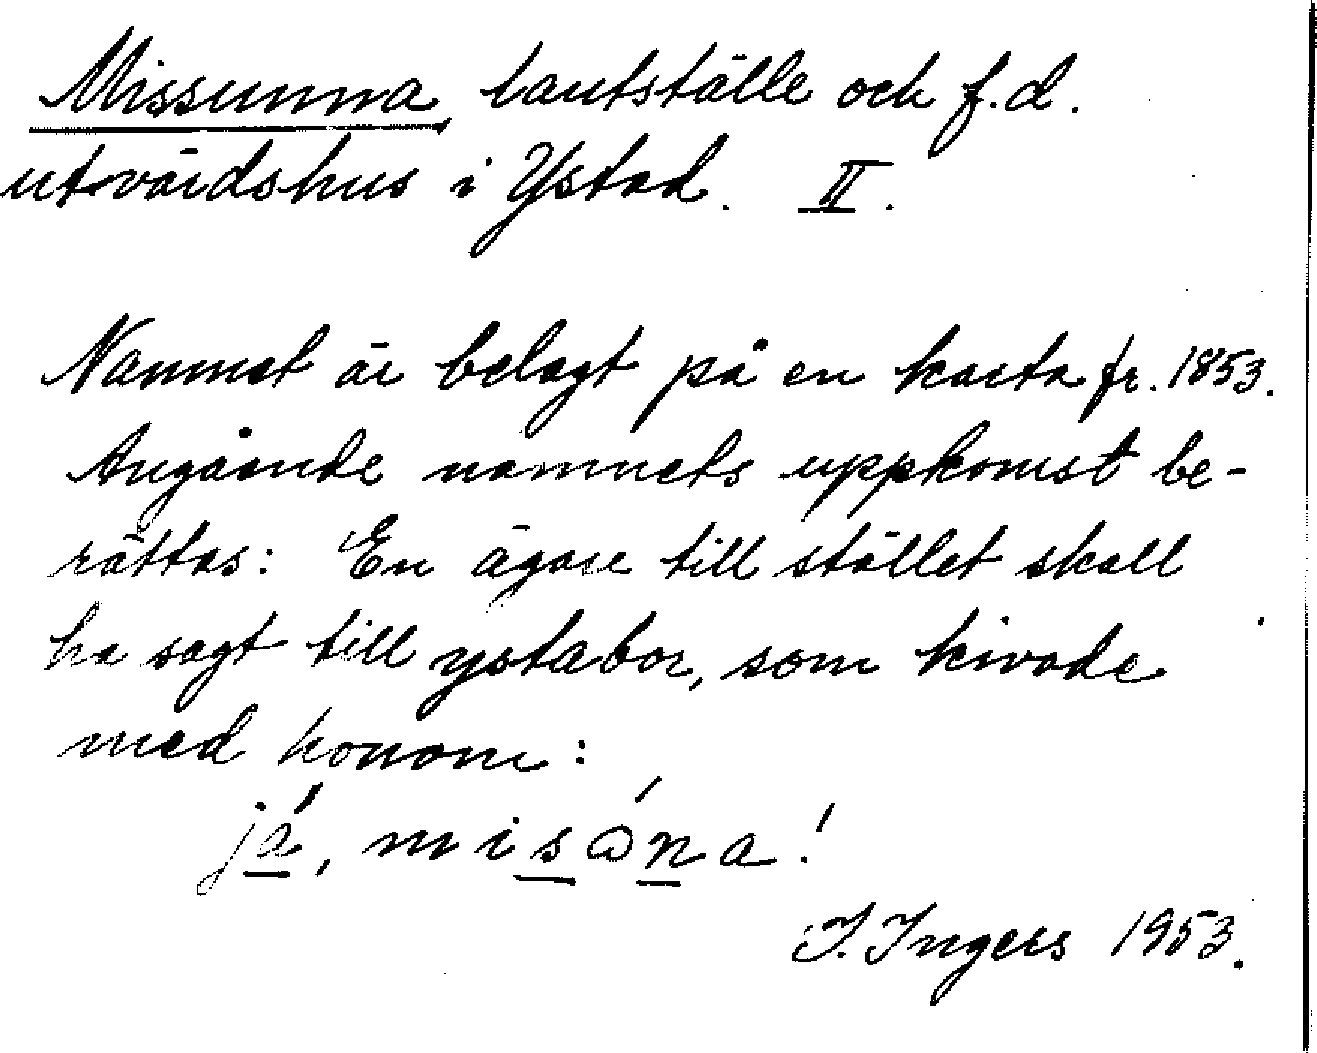 Missunna, lantställe och f.d.
utvärdshus i Ystad. II.
Namnet är belagt på en karta fr. 1853.
Angående namnets uppkomst be-
rättas: En ägare till stället skall
ha sagt till ystabor, som kivade
med honom:
já, misɷ́na!
I. Ingers 1953.